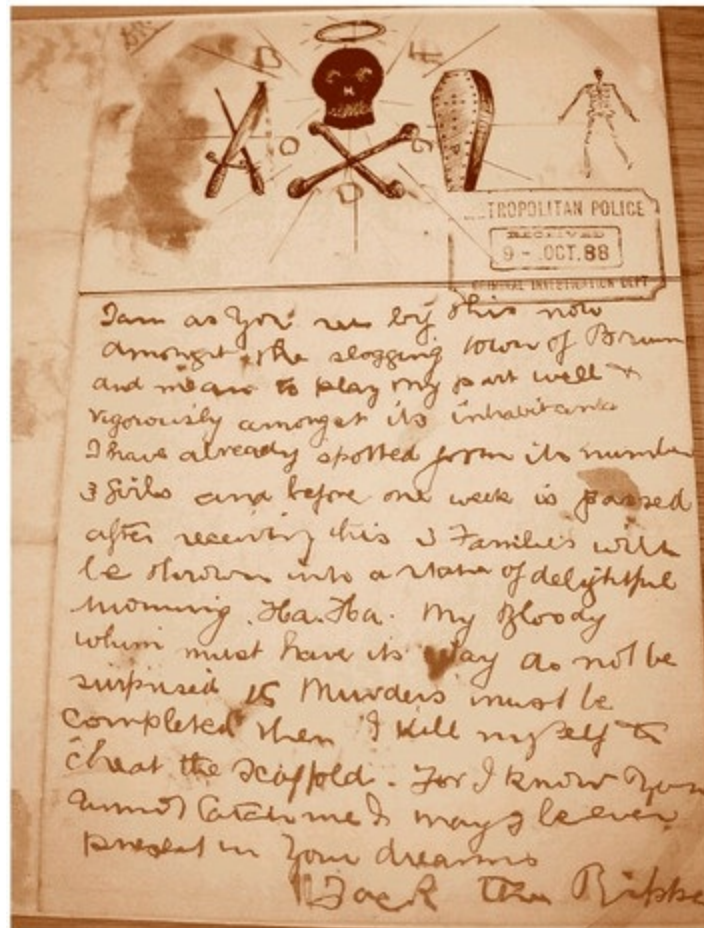 METROPOLITAN POLICE
RECEIVED
9 - OCT. 88
CRIMINAL INVESTIGATION DEPT
I am as you see by this now
amongst the slogging town of Brum
and mean to play my part well &
vigorously amongst its inhabitants
I have already spotted from its number
3 Girls and before one week is passed
after receiving this 3 Families will
be thrown into a state of delightful
mourning. Ha. Ha. My Bloody
whim must have its way do not be
surprised 15 Murders must be
completed then I kill myself &
cheat the scaffold. For I know you
cannot catch me & may I be ever
present in your dreams
Jack the Rippe